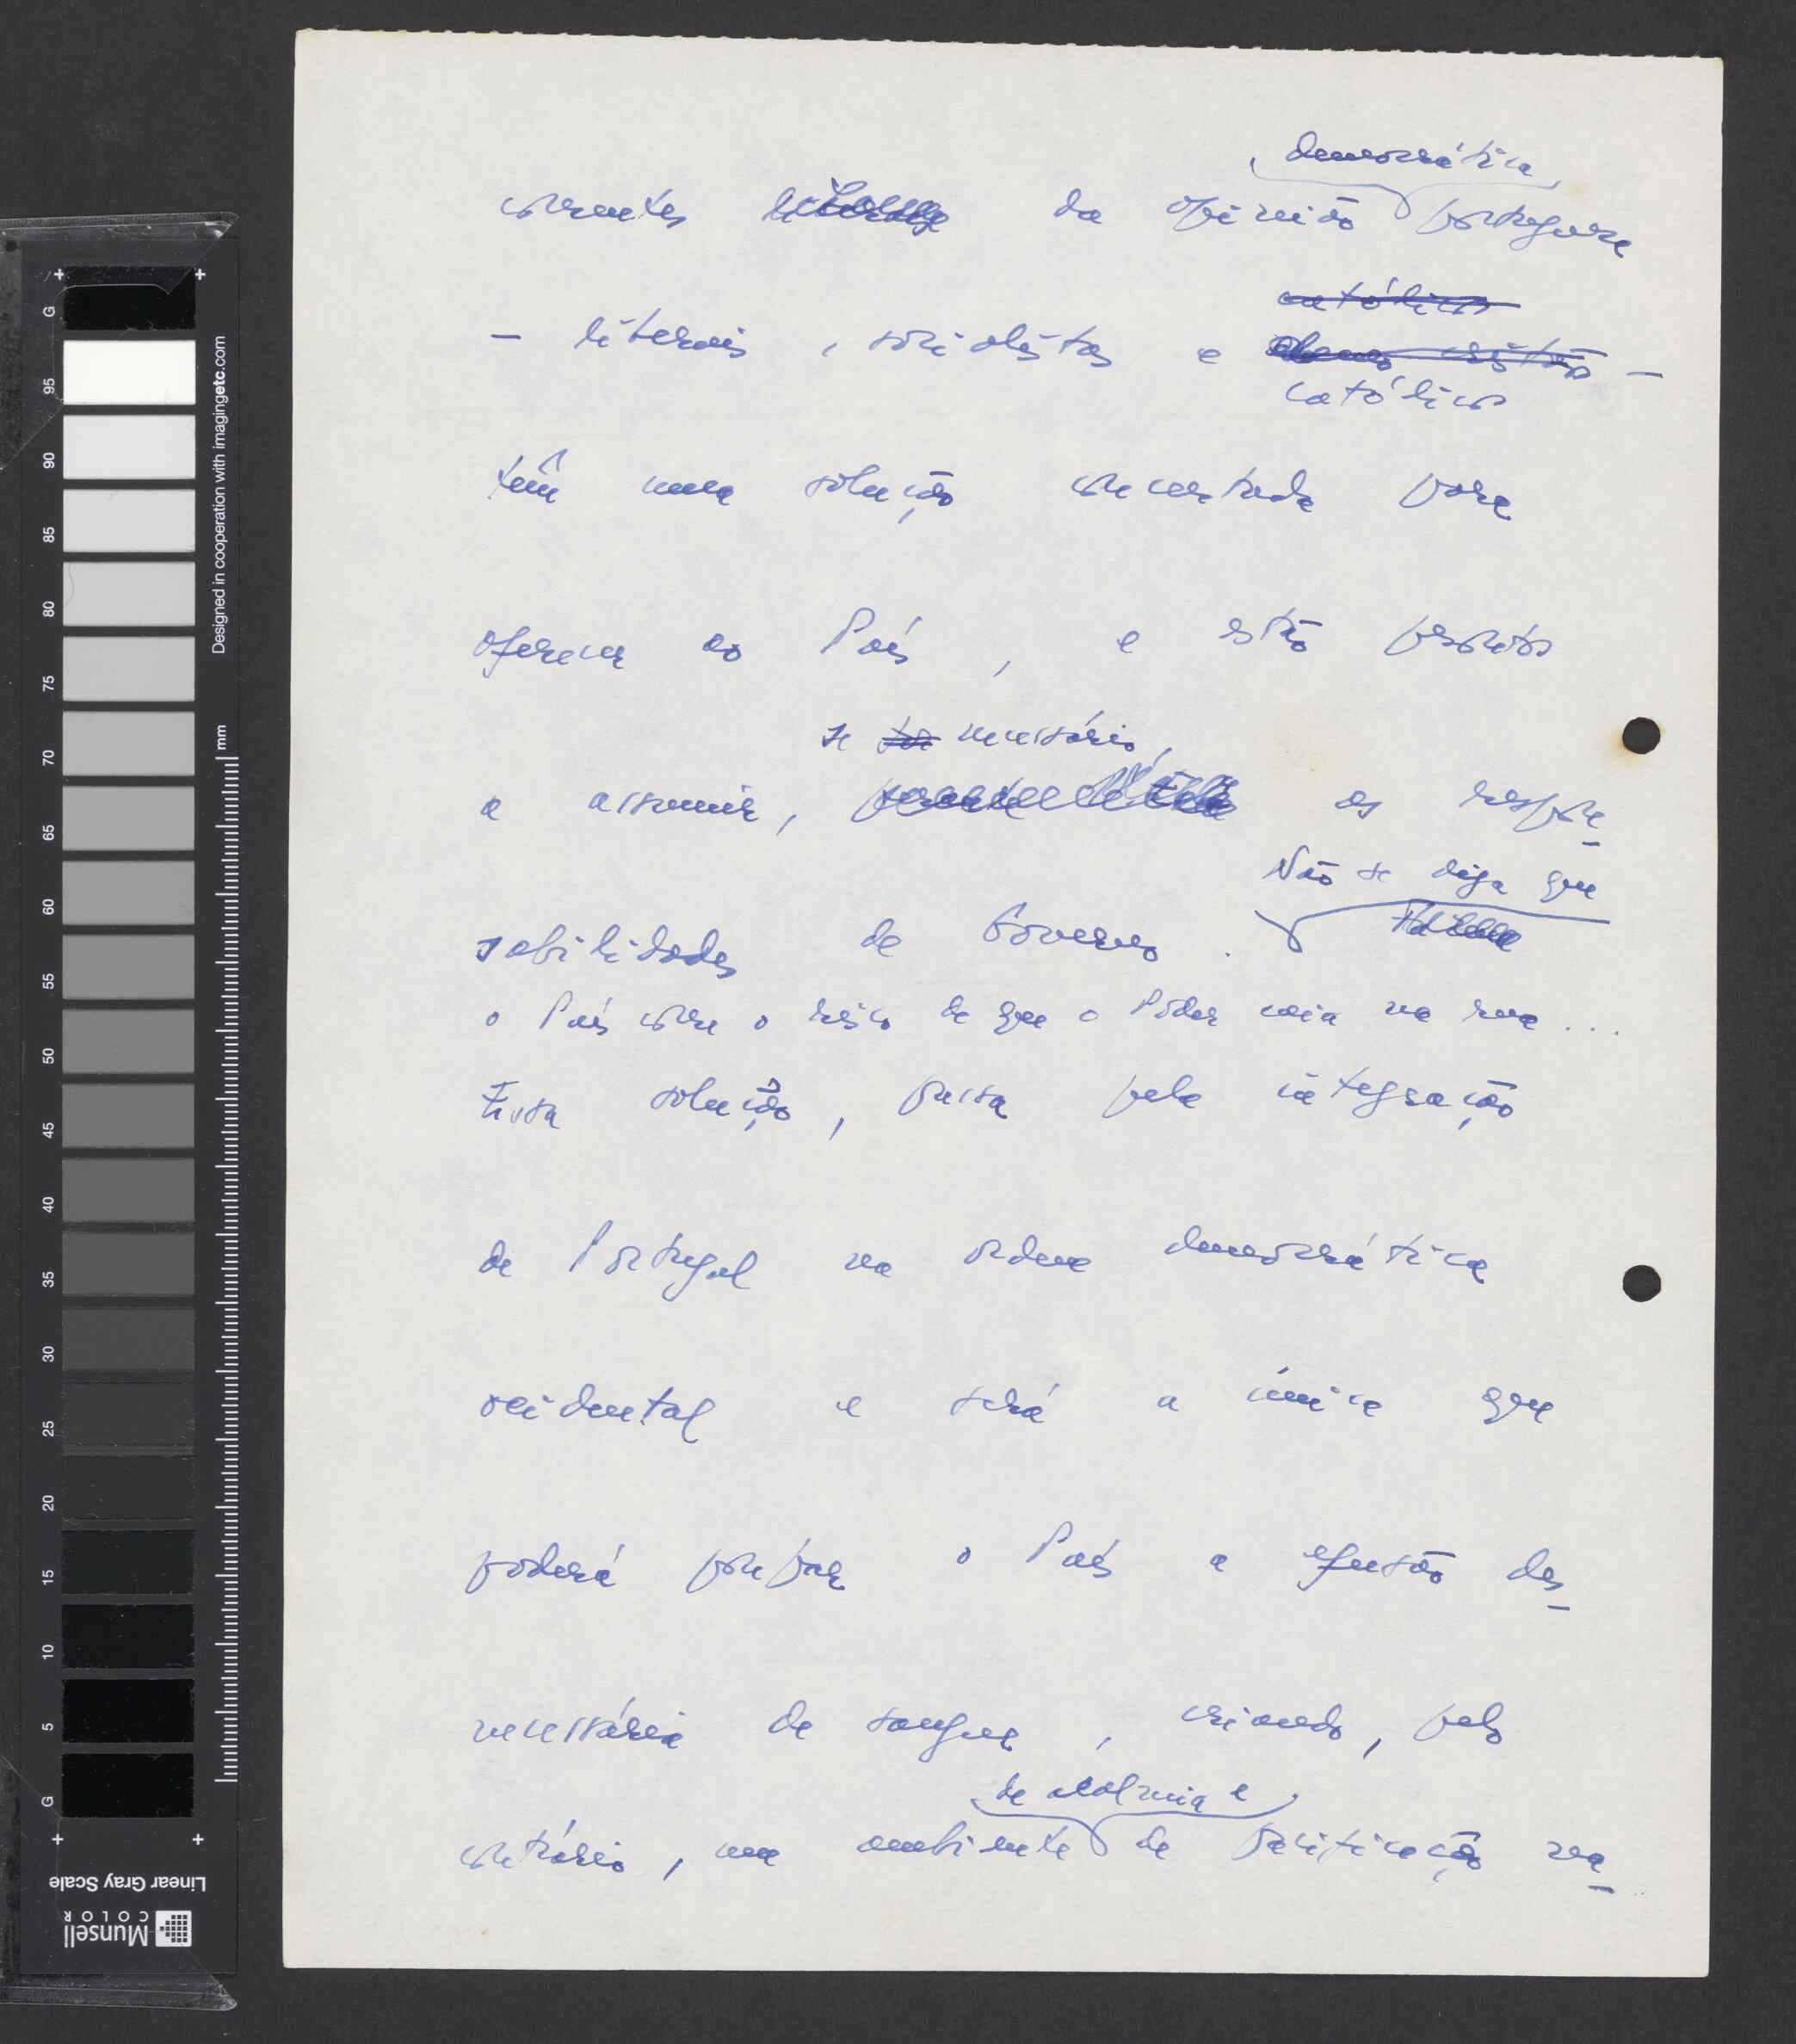 democrática
correntes da opinião portuguesa
católicos
- liberais, socialistas e democristãos -
católicos
têm uma solução concertada para
oferecer ao País, e estão prontos
se for necessário,
a assumir, as respon-
Não se diga que
sabilidades de Governo.
o País corre o risco de que o Poder caia na rua...
Essa solução, passa pela integração
de Portugal na ordem democrática
ocidental e será a única que
poderá poupar o País a efusão des-
necessária de sangue, criando, pelo
de acalmia e
contrário, um ambiente de pacificação na-
G 95 90 85 80 75 70 65 60 55 50 45 40 35 30 25 20 15 10 5 G
mm
Designed in cooperation with imagingetc.com
Linear Gray Scale
Munsell
COLOR